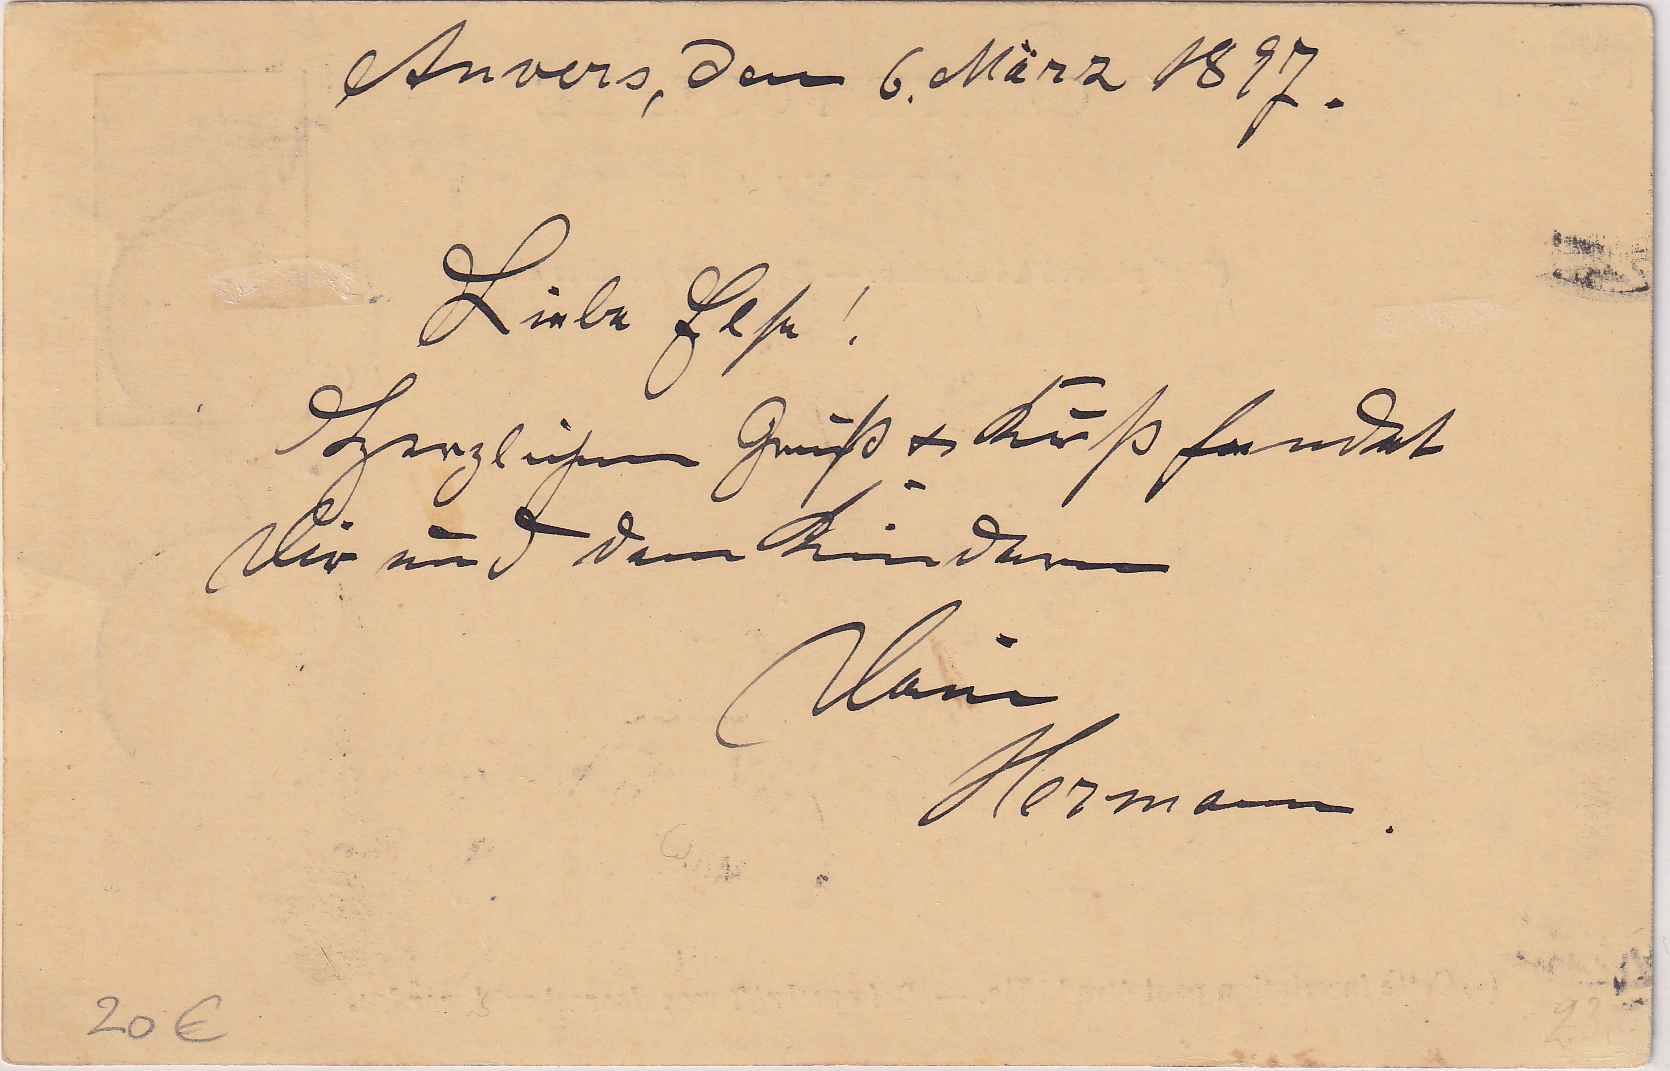 Anvers, den 6. März 1897.
Liebe Else!
Herzlichen Gruß & Kuß sendet
Dir und den Kindern
Dein
Hermann.
20 €